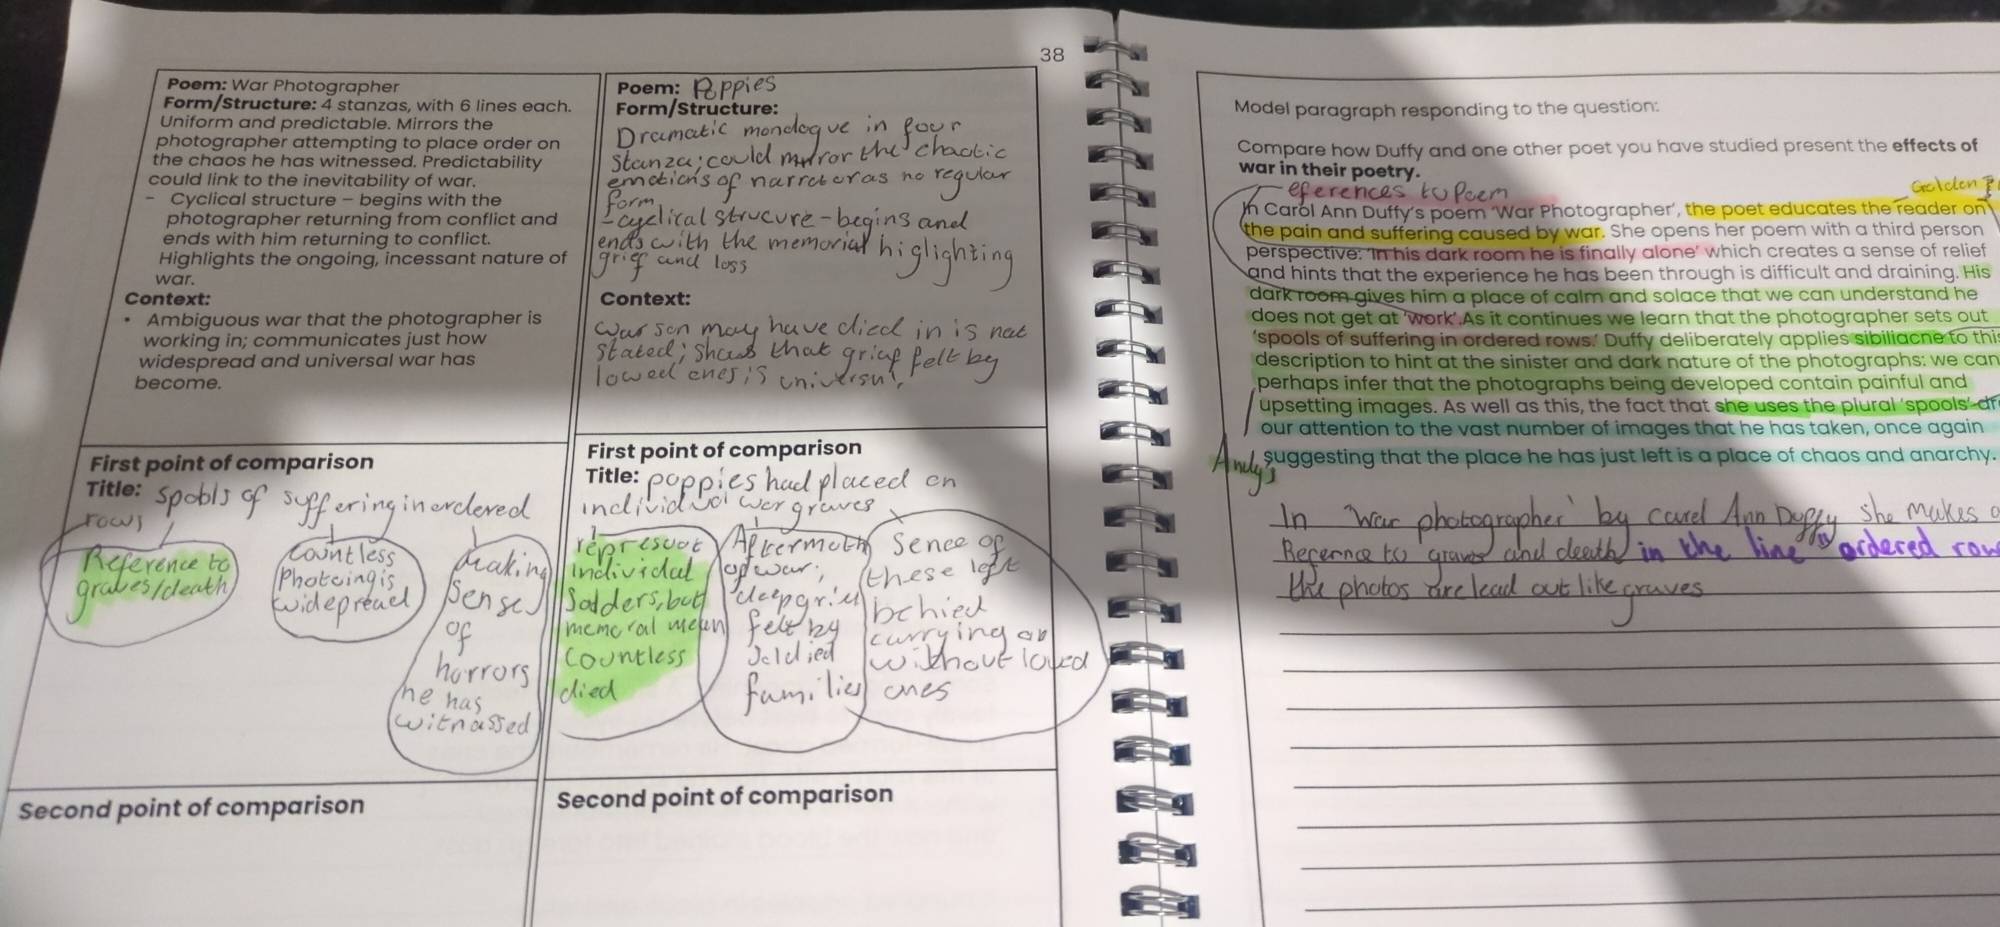 38
Poem: War Photographer
Form/Structure: 4 stanzas, with 6 lines each.
Uniform and predictable. Mirrors the
photographer attempting to place order on
the chaos he has witnessed. Predictability
could link to the inevitability of war.
- Cyclical structure – begins with the
photographer returning from conflict and
ends with him returning to conflict.
Highlights the ongoing, incessant nature of
war.
Context:
• Ambiguous war that the photographer is
working in; communicates just how
widespread and universal war has
become.
Poem: Poppies
Form/Structure:
Dramatic monologue in four
Stanza; could mirror the chaotic
emotions of narrator as no regular
form
- cyclical strucure - begins and
ends with the memorial higlighting
grief and loss
Context:
War son may have died in is not
Stated; shows that grief felt by
loved ones is universal.
First point of comparison
Title: spools of suffering in ordered
rows
Reference to
graves/death
countless
photoing is
widepread
Making
sense
of
horrors
he has
witnassed
First point of comparison
Title: poppies had placed on
individual war graves
represent
individal
Soldders, but
memoral mean
countless
died
Aftermath
of war;
deep grief
felt by
soldied
families
Sence of
these left
behied
carrying on
without loved
ones
Second point of comparison
Second point of comparison
Model paragraph responding to the question:
Compare how Duffy and one other poet you have studied present the effects of
war in their poetry.
references to Poem
Golden
In Carol Ann Duffy's poem 'War Photographer', the poet educates the reader on
the pain and suffering caused by war. She opens her poem with a third person
perspective: 'In his dark room he is finally alone' which creates a sense of relief
and hints that the experience he has been through is difficult and draining. His
dark room gives him a place of calm and solace that we can understand he
does not get at 'work'. As it continues we learn that the photographer sets out
'spools of suffering in ordered rows.' Duffy deliberately applies sibiliacne to this
description to hint at the sinister and dark nature of the photographs: we can
perhaps infer that the photographs being developed contain painful and
upsetting images. As well as this, the fact that she uses the plural 'spools'
our attention to the vast number of images that he has taken, once again
suggesting that the place he has just left is a place of chaos and anarchy.
Andy's
In 'War photographer' by carol Ann Duffy she makes a
Refernce to graves and death in the line "ordered row
the photos are lead out like graves